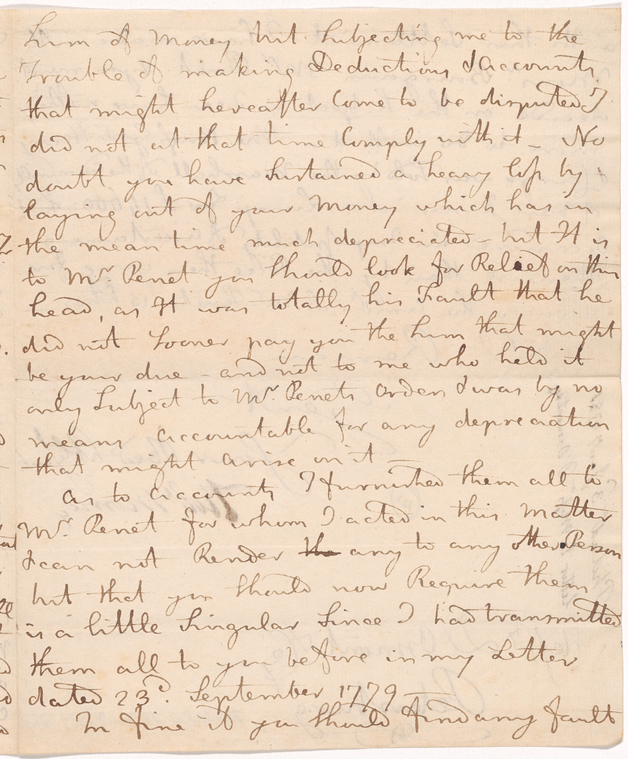 Sum of Money but Subjecting me to the
Trouble of making Deductions & accounts
that might hereafter Come to be disputed I
did not at that time Comply with it – No
doubt you have Sustained a heavy loss by
laying out of your Money which has in
the mean time much depreciated – but It is
to Mr. Penet you Should look for Relief on this
head, as It was totally his Fault that he
did not Sooner pay you the Sum that might
be your due – and not to me who held it
only Subject to Mr. Penets orders & was by no
means accountable for any depreciation
that might arise on it –
as to accounts I furnished them all to
Mr. Penet for whom I acted in this Matter
& can not Render the any to any other Person
but that you Should now Require them
is a little Singular Since I had transmitted
them all to you before in my Letter
dated 23d. September 1779
In fine if you Should find any fault